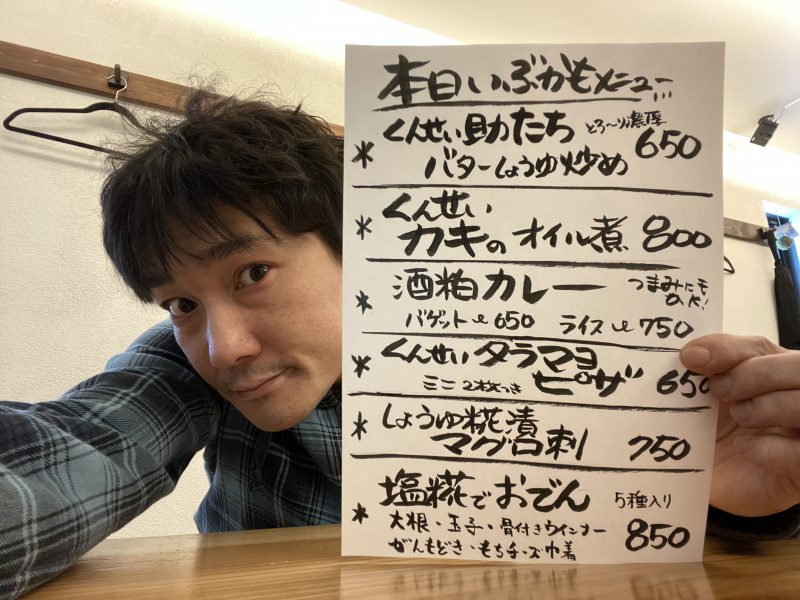 本日いぶかもメニュー
＊くんせい助たち とろ〜り濃厚
バターしょうゆ炒め 650
＊くんせい
カキのオイル煮 800
＊酒粕カレー つまみにも
バゲット 650 ライス 750
＊くんせいタラマヨ
ミニ2枚つき ピザ 650
＊しょうゆ糀漬
マグロ刺 750
＊塩糀でおでん 5種入り
大根・玉子・骨付きウインナー
がんもどき・もちチーズ巾着 850